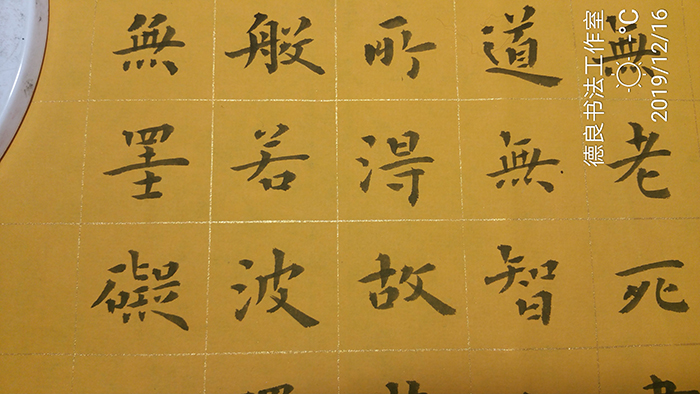 無老死
道無智
所得故
般若波
無罣礙
德良书法工作室
--°C
2019/12/16